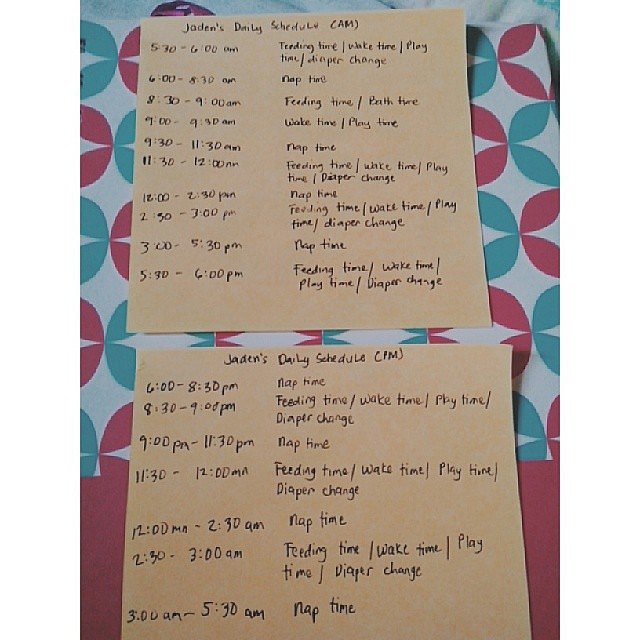 Jaden's Daily Schedule (AM)
5:30 - 6:00 am Feeding time / wake time / Play
time / diaper change
6:00 - 8:30 am Nap time
8:30 - 9:00 am Feeding time / Bath time
9:00 - 9:30 am Wake time / Play time
9:30 - 11:30 am Nap time
11:30 - 12:00nn Feeding time / wake time / Play
time / Diaper change
12:00 - 2:30 pm Nap time
2:30 - 3:00 pm Feeding time / Wake time / Play
time / diaper change
3:00 - 5:30 pm Nap time
5:30 - 6:00 pm Feeding time / Wake time /
Play time / Diaper change
Jaden's Daily Schedule (PM)
6:00 - 8:30 pm Nap time
8:30 - 9:00 pm Feeding time / Wake time / Play time /
Diaper change
9:00 pm - 11:30 pm Nap time
11:30 - 12:00mn Feeding time / Wake time / Play time /
Diaper change
12:00mn - 2:30 am Nap time
2:30 - 3:00 am Feeding time / Wake time / Play
time / Diaper change
3:00 am - 5:30 am Nap time